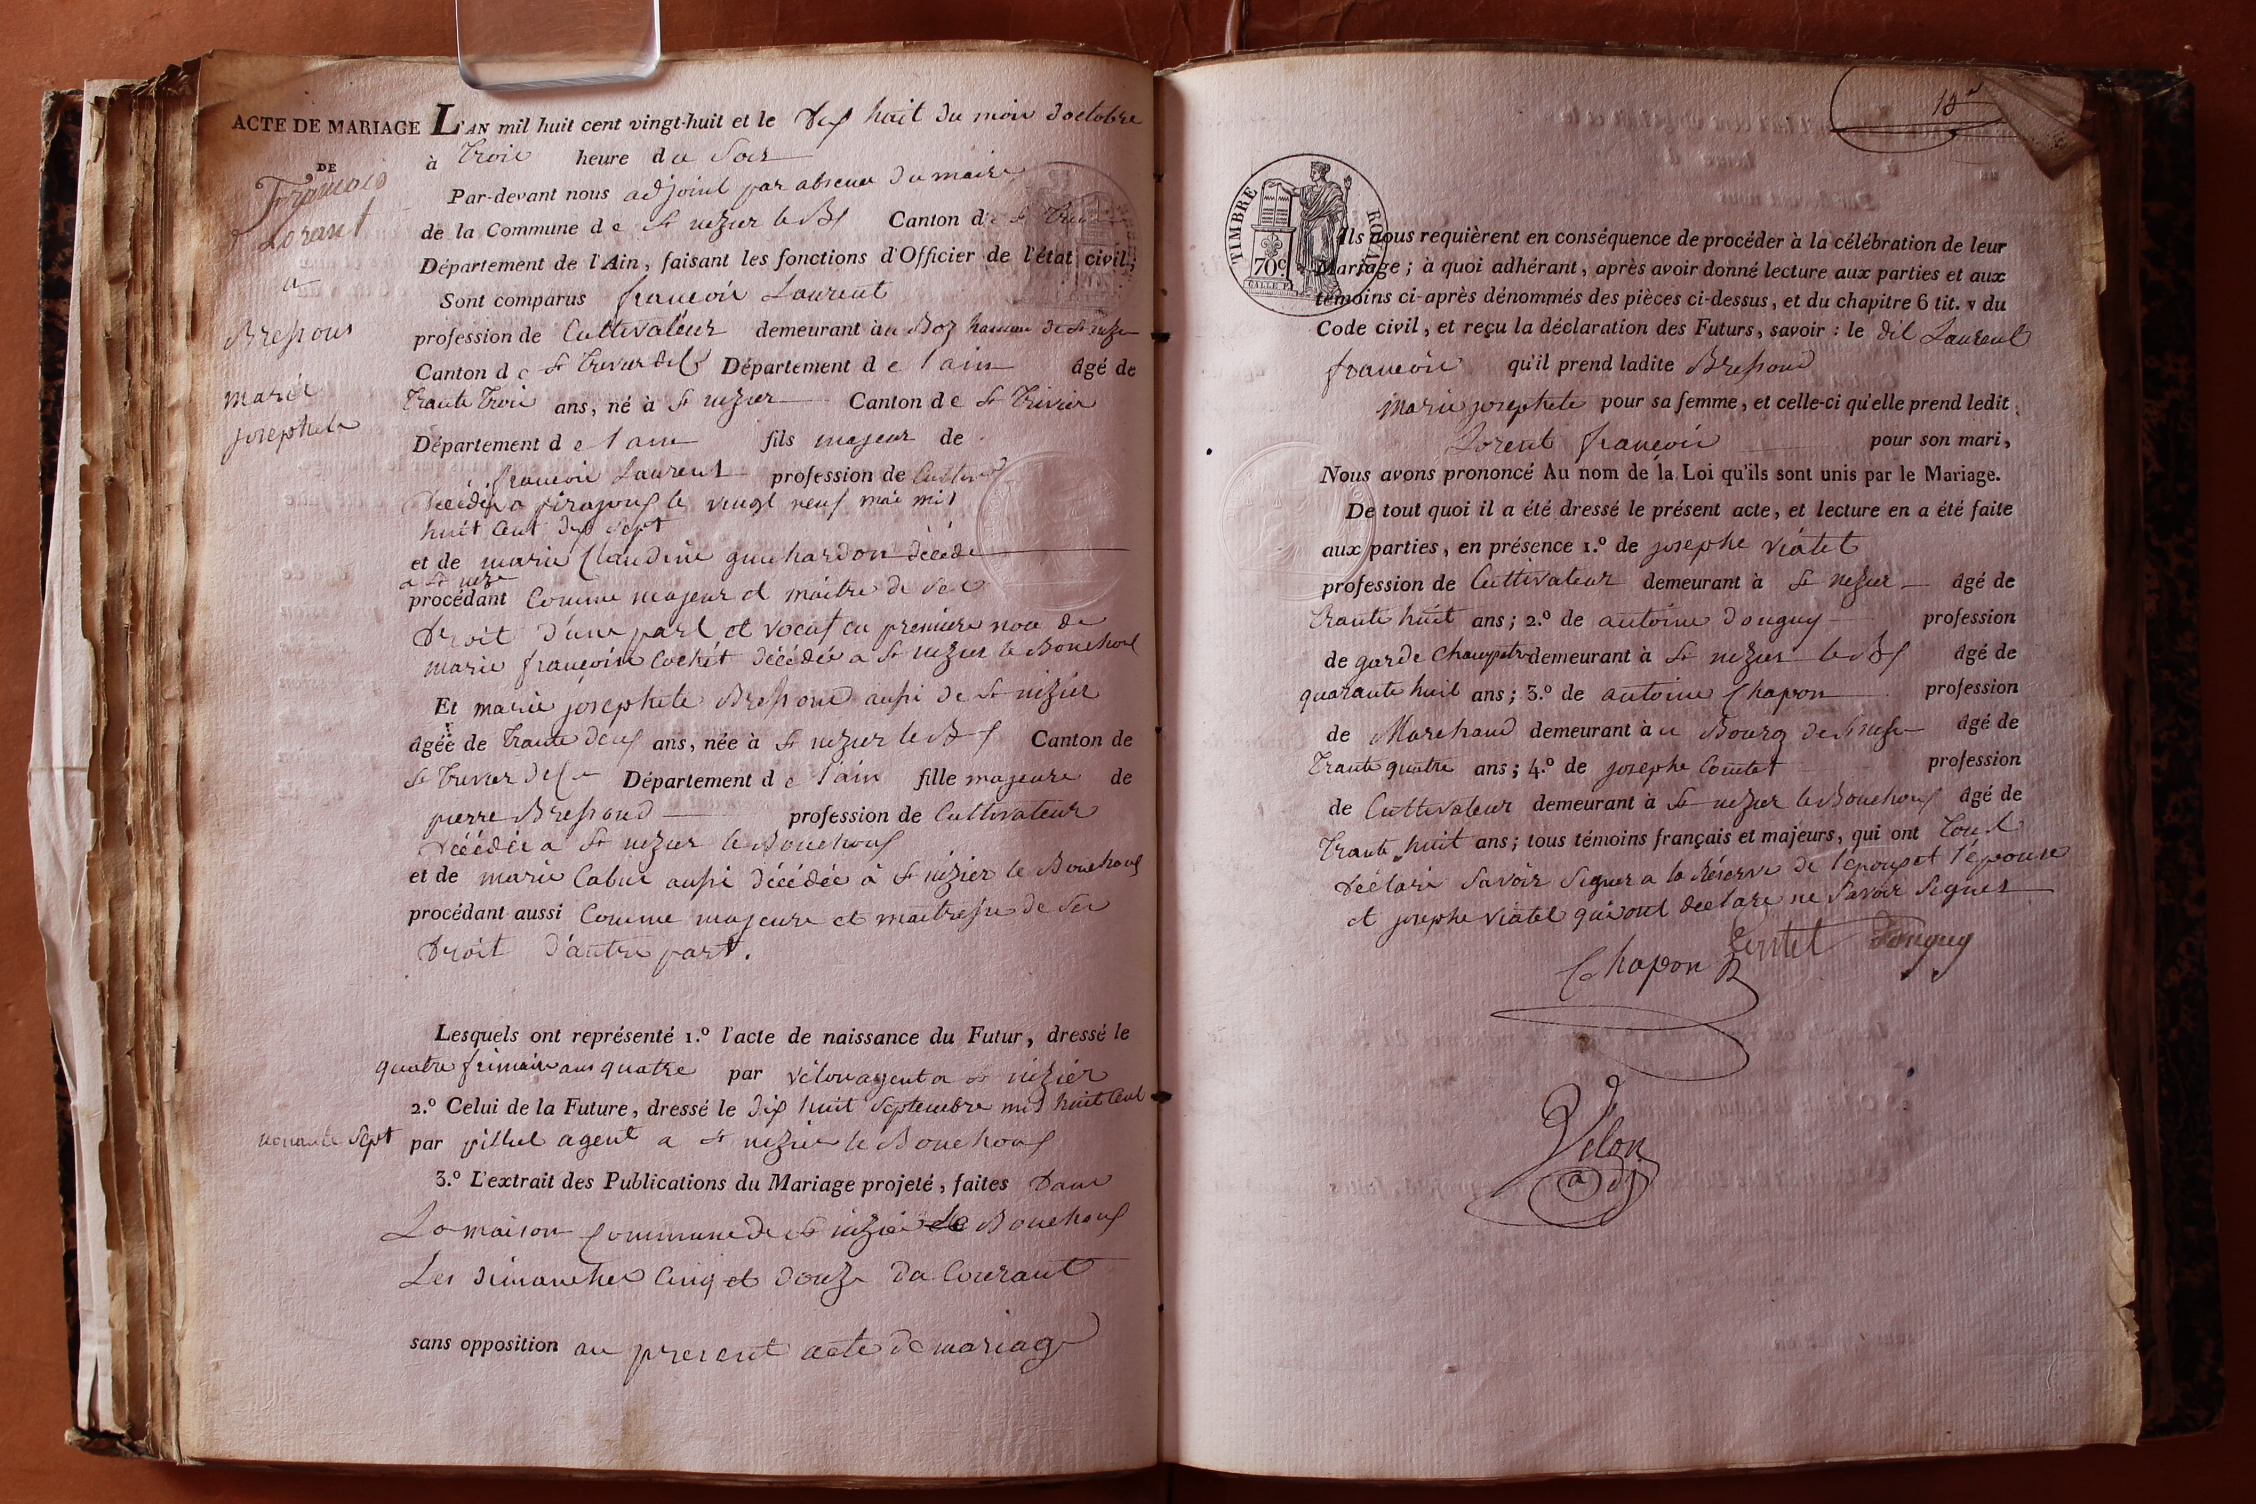 ACTE DE MARIAGE
DE
François
Lorant
a
Bressous
marie
josephete
L'AN mil huit cent vingt-huit et le dix huit du mois doctobre
à trois heure du Soir
Par-devant nous adjoint par absence du maire
de la Commune de St nizier le Bx Canton de St Triv
Département de l'Ain, faisant les fonctions d'Officier de l'état civil;
Sont comparus françois Laurent
profession de Cultivateur demeurant au Boz hameau de St nizier
Canton de St Trivier de Département de l'ain âgé de
trante trois ans, né à St nizier Canton de St Trivier
Département de l'ain fils majeur de
françois Laurent profession de
décédé a le vingt neuf mai mil
huit cent dix sept
et de marie Claudine guichardon décédé
a St nizr
procédant Comme majeur et maitre de Ses
Droit d'une part et vocat en premiere noce de
marie françoise Cochet décédée a St nizier le Bouchoux
Et marie josephete Bressoud aussi de St nizier
âgée de trante deux ans, née à St nizier le Bx Canton de
St Trivier de Département de l'ain fille majeure de
pierre Bressoud profession de Cultivateur
décédée a St nizier le Bouchoux
et de marie Cabut aussi décédée à St nizier le Bouchoux
procédant aussi Comme majeure et maitresse de Ses
Droit d'autre part.
Lesquels ont représenté 1.º l'acte de naissance du Futur, dressé le
quatre frimaire ans quatre par vélon agent a St nizier
2.º Celui de la Future, dressé le dix huit Septembre mil huit Cent
nonante Sept par pillet agent a St nizier le Bouchoux
3.º L'extrait des Publications du Mariage projeté, faites dans
La maison Commune de St nizier le Bouchoux
Les dimanches Cinq et douze du Courant
sans opposition au present acte de mariage
18
TIMBRE ROYAL
70c.
Ils nous requièrent en conséquence de procéder à la célébration de leur
Mariage; à quoi adhérant, après avoir donné lecture aux parties et aux
témoins ci-après dénommés des pièces ci-dessus, et du chapitre 6 tit. v du
Code civil, et reçu la déclaration des Futurs, savoir: le dit Laurent
françois qu'il prend ladite Bressoud
Marie josephete pour sa femme, et celle-ci qu'elle prend ledit
Lorent françois pour son mari,
Nous avons prononcé Au nom de la Loi qu'ils sont unis par le Mariage.
De tout quoi il a été dressé le présent acte, et lecture en a été faite
aux parties, en présence 1.º de josephe viatet
profession de Cultivateur demeurant à St nizier âgé de
trante huit ans; 2.º de antoine donguy profession
de garde Champetre demeurant à St nizier le Bx âgé de
quarante huit ans; 3.º de antoine Chapon profession
de Marchand demeurant à u Bourg de St nizier âgé de
trante quatre ans; 4.º de josephe Comtet profession
de Cultivateur demeurant à St nizier le Bouchoux âgé de
trante huit ans; tous témoins français et majeurs, qui ont tous
déclaré Savoir Signer a la Réserve de l'époux et l'épouse
et josephe viatet qui ont declare ne Savoir Signer
Chapon Comtet Donguy
Velon
adj